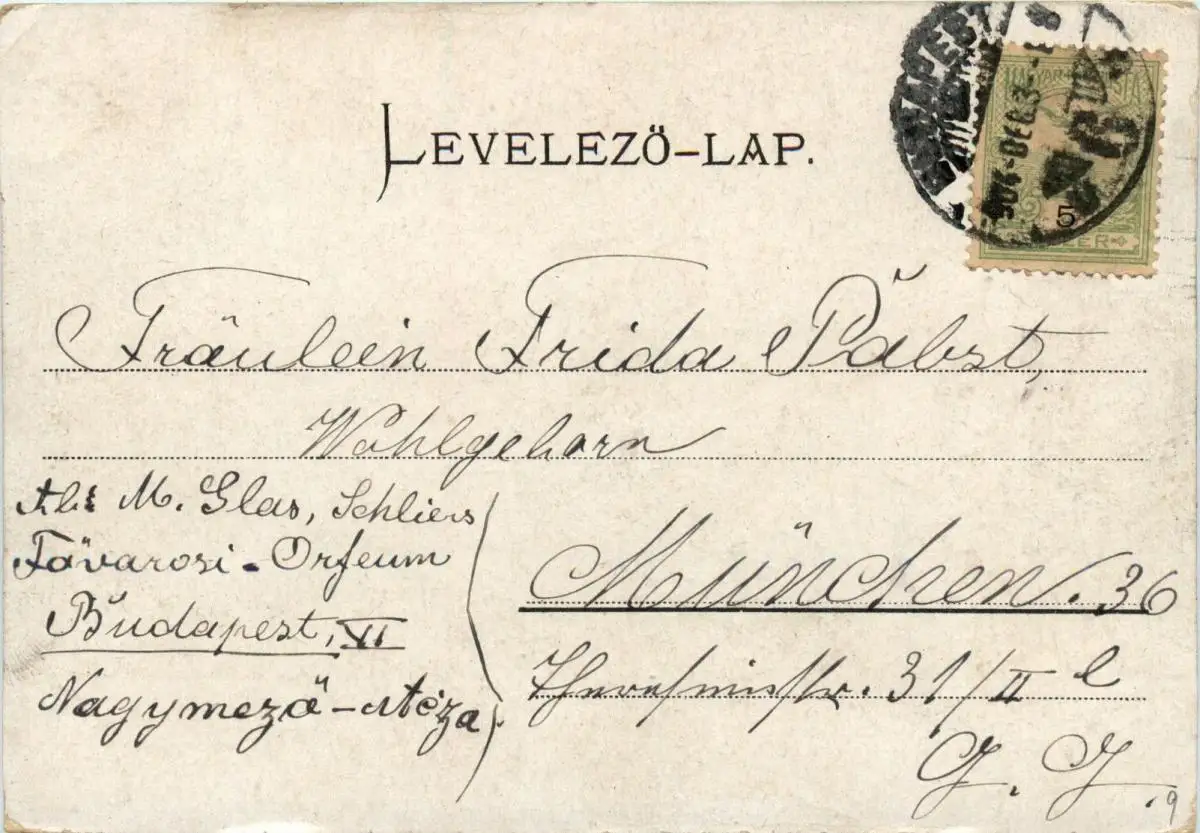 LEVELEZŐ-LAP.
BUDAPEST
904-DEC.3
MAGYAR
5
Fräulein Frida Pabst,
Wohlgeborn
Abs M. Glas, Schliers
Fövarosi-Orfeum
Budapest, VI
Nagymező-utcza
München. 36
Theresienstr. 31/II l